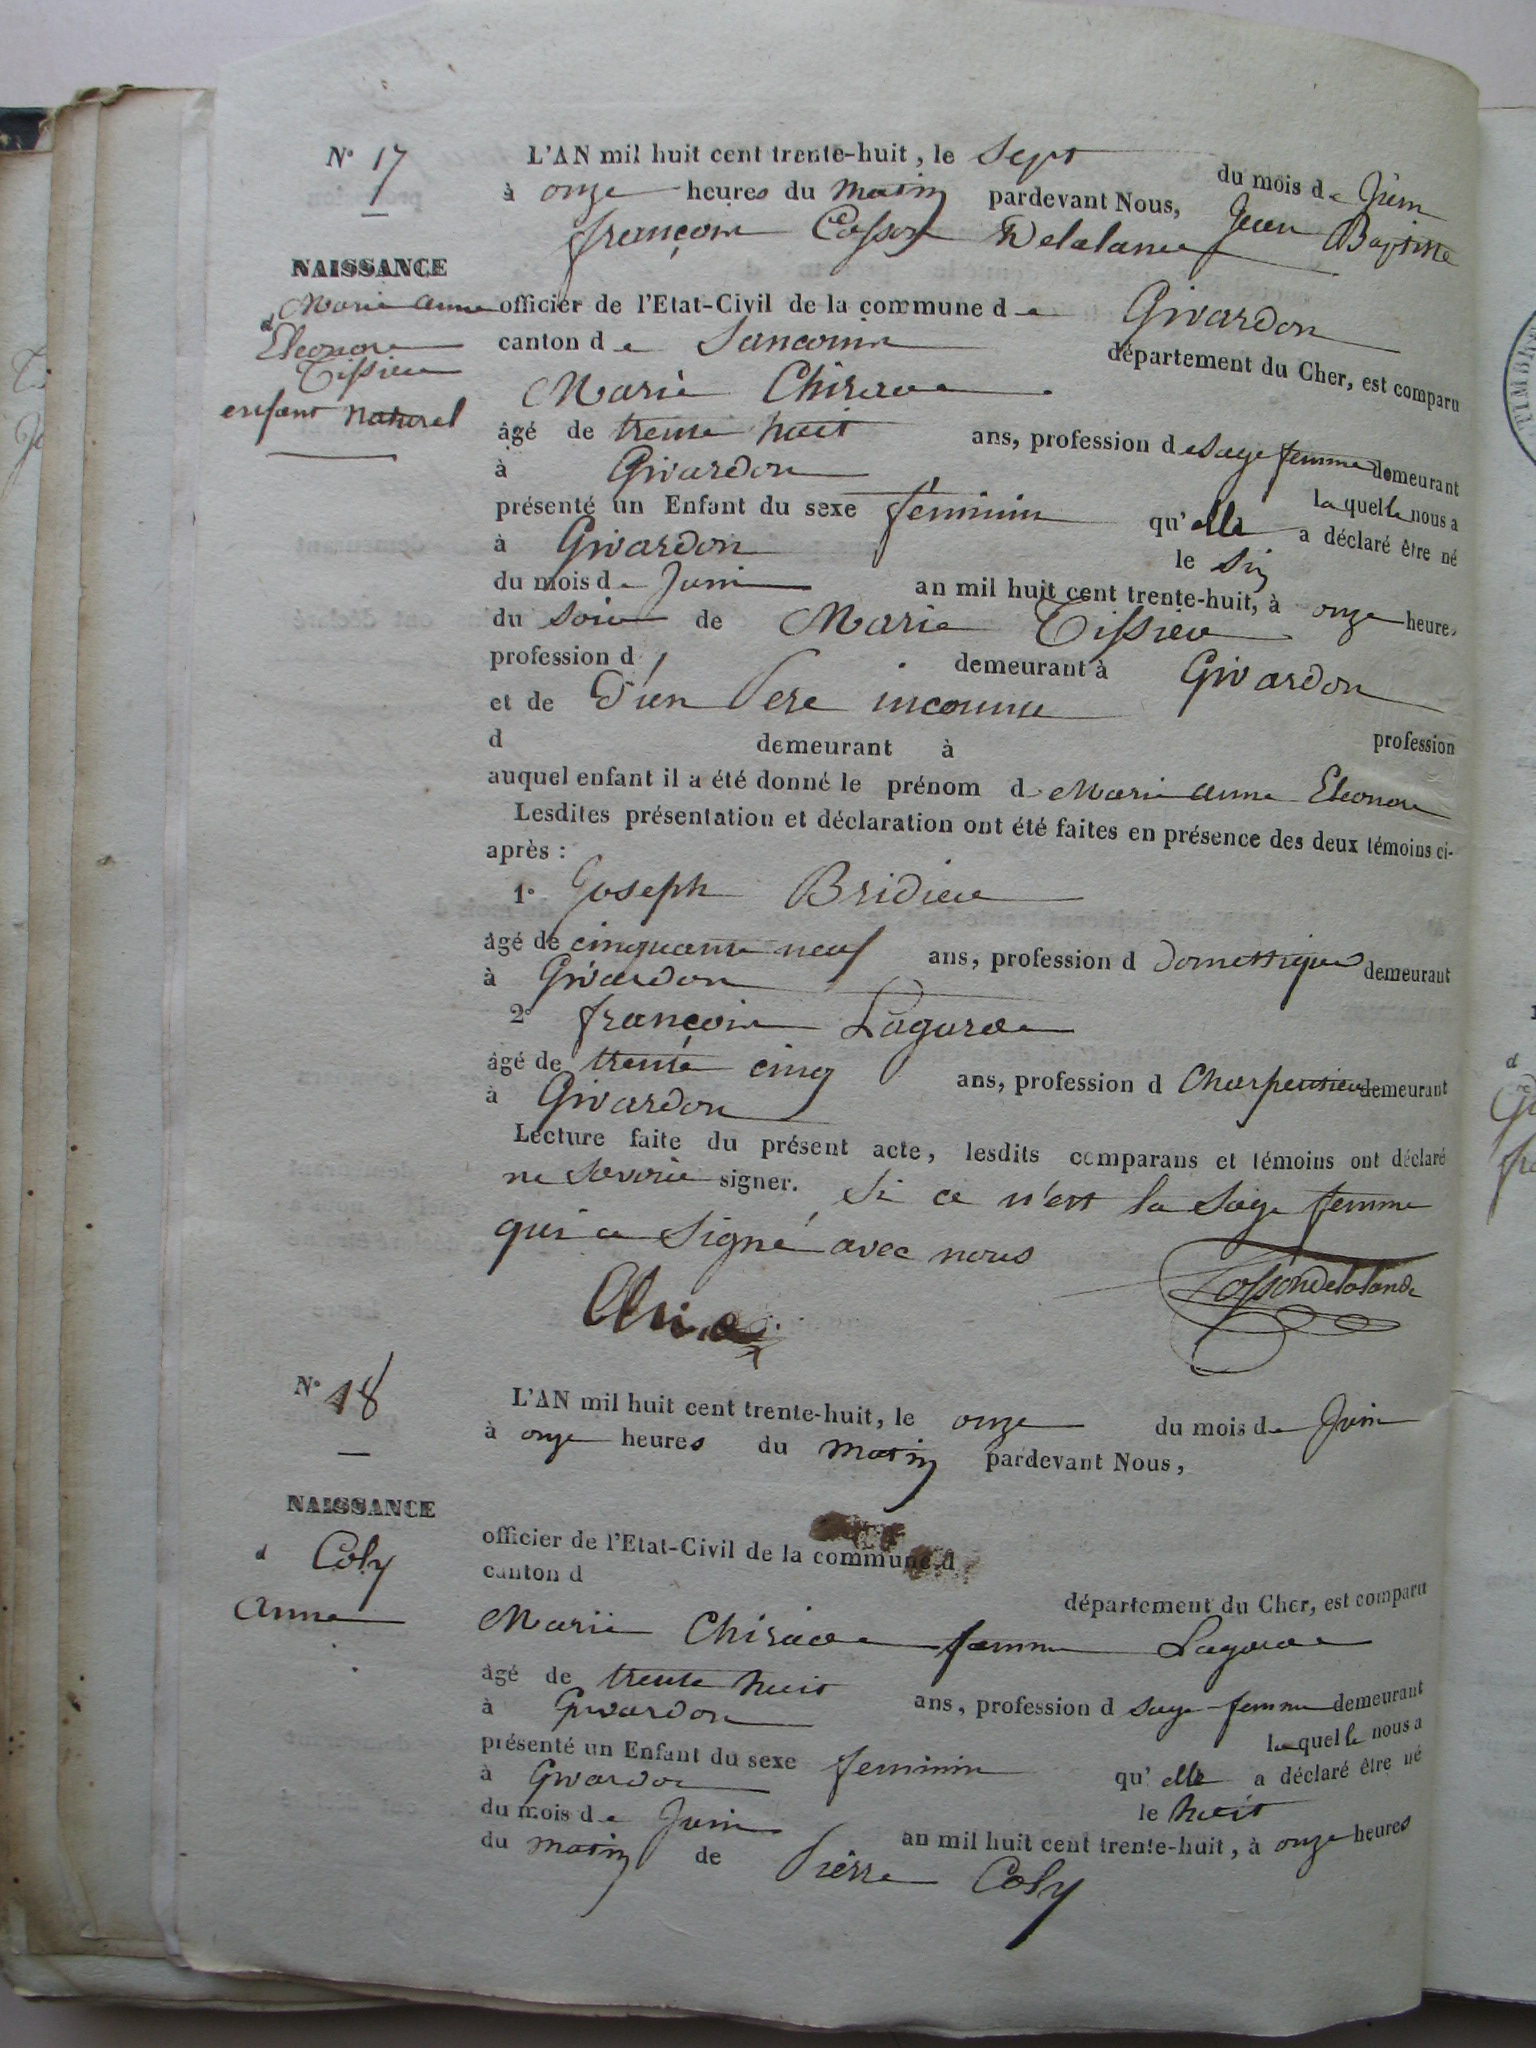 N° 17
L'AN mil huit cent trente-huit, le Sept du mois de Juin
à onze heures du matin pardevant Nous, Jean Baptiste
françois Cosson Delalande
NAISSANCE
d Marie anne
Eléonore
Tissier
enfant Naturel
officier de l'Etat-Civil de la commune de Givardon
canton de Sancoins département du Cher, est comparu
Marie Chirade
âgé de trente huit ans, profession de sage femme demeurant
à Givardon laquelle nous a
présenté un Enfant du sexe féminin qu'elle a déclaré être né
à Givardon le six
du mois de Juin an mil huit cent trente-huit, à onze heures
du soir de Marie Tissier
profession d demeurant à Givardon
et de D'un Pere inconnu
d demeurant à profession
auquel enfant il a été donné le prénom d Marie anne Eleonore
Lesdites présentation et déclaration ont été faites en présence des deux témoins ci-
après :
1° Joseph Bridier
âgé de cinquante neuf ans, profession d domestique demeurant
à Givardon
2° françois Lagarde
âgé de trente cinq ans, profession d Charpentier demeurant
à Givardon
Lecture faite du présent acte, lesdits comparans et témoins ont déclaré
ne savoir signer. Si ce n'est la sage femme
qui a signé avec nous
Cosson Delalande
N° 18
L'AN mil huit cent trente-huit, le onze du mois de Juin
à onze heures du matin pardevant Nous,
NAISSANCE
d Coly
anne
officier de l'Etat-Civil de la commune d
canton d département du Cher, est comparu
Marie Chirade femme Lagarde
âgé de trente huit ans, profession d sage-femme demeurant
à Givardon laquelle nous a
présenté un Enfant du sexe feminin qu'elle a déclaré être né
à Givardon le huit
du mois de Juin an mil huit cent trente-huit, à onze heures
du matin de Pierre Coly